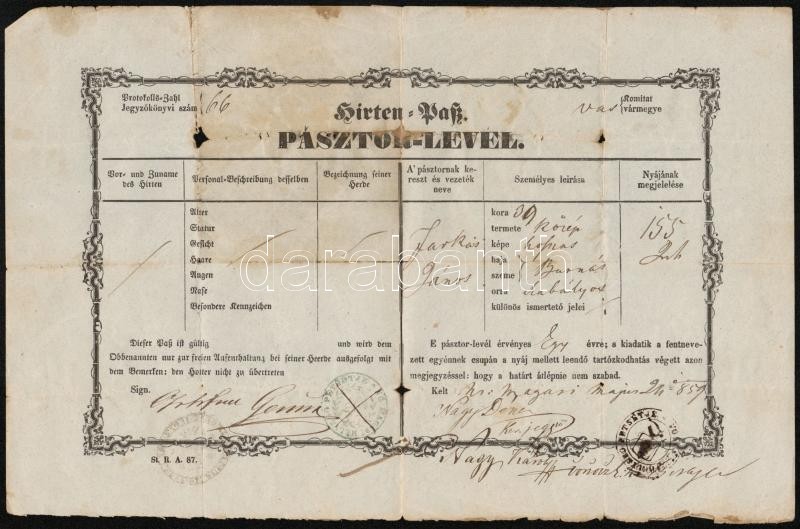 Protokolls-Zahl
Jegyzőkönyvi szám 66
Hirten-Paß.
PÁSZTOR-LEVÉL.
vas Komitat
vármegye
Vor- und Zuname
des Hirten
Personal-Beschreibung desselben
Bezeichnung seiner
Herde
A' pásztornak ke-
reszt és vezeték
neve
Személyes leirása
Nyájának
megjelelése
Alter
Statur
Gesicht
Haare
Augen
Nase
Besondere Kennzeichen
Farkas
János
kora 39
termete közép
képe
haja Barnás
szeme
orra szabályos
különös ismertető jelei
155
Juh
Dieser Paß ist gültig und wird dem
Obbenannten nur zur freien Aufenthaltung bei seiner Heerde ausgefolgt mit
dem Bemerken: den Hotter nicht zu übertreten
Sign.
E pásztor-levél érvényes Egy évre; s kiadatik a fentneve-
zett egyénnek csupán a nyáj mellett leendő tartózkodhatás végett azon
megjegyzéssel: hogy a határt átlépnie nem szabad.
Kelt
Nagy
Nagy
St. R. A. 87.
darabanth.com